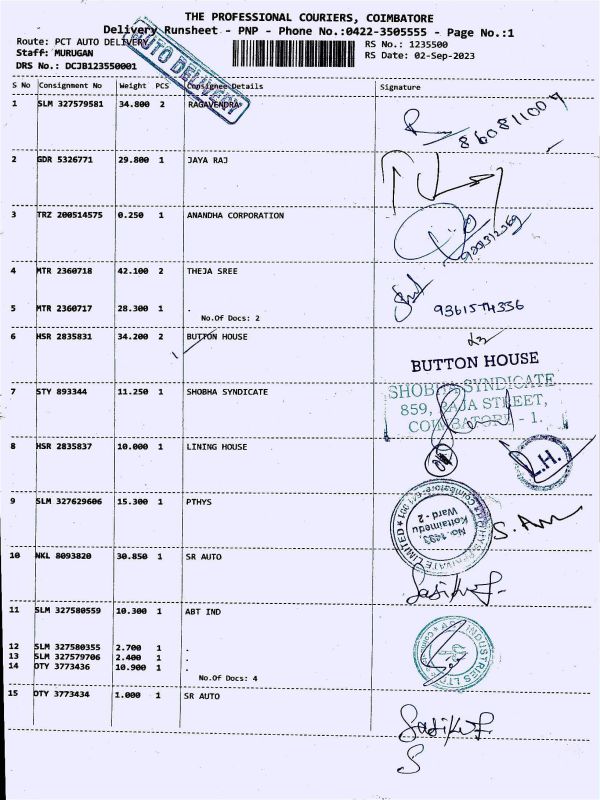 THE PROFESSIONAL COURIERS, COIMBATORE
Delivery Runsheet - PNP - Phone No.:0422-3505555 - Page No.:1
Route: PCT AUTO DELIVERY
Staff: MURUGAN
DRS No.: DCJB123550001
RS No.: 1235500
RS Date: 02-Sep-2023
AUTO DELIVERY
S No Consignment No Weight PCS Consignee Details Signature
1 SLM 327579581 34.800 2 RAGAVENDRA
2 GDR 5326771 29.800 1 JAYA RAJ
3 TRZ 200514575 0.250 1 ANANDHA CORPORATION
4 MTR 2360718 42.100 2 THEJA SREE
5 MTR 2360717 28.300 1 .
No.Of Docs: 2
6 HSR 2835831 34.200 2 BUTTON HOUSE
BUTTON HOUSE
7 STY 893344 11.250 1 SHOBHA SYNDICATE
SHOBHA SYNDICATE
859, RAJA STREET,
COIMBATORE - 1.
8 HSR 2835837 10.000 1 LINING HOUSE
L.H.
9 SLM 327629606 15.300 1 PTHYS
No. 1493,
Kottaimedu
Ward - 2
10 NKL 8093820 30.850 1 SR AUTO
11 SLM 327580559 10.300 1 ABT IND
12 SLM 327580355 2.700 1 .
13 SLM 327579706 2.400 1 .
14 OTY 3773436 10.900 1 .
No.Of Docs: 4
15 OTY 3773434 1.000 1 SR AUTO